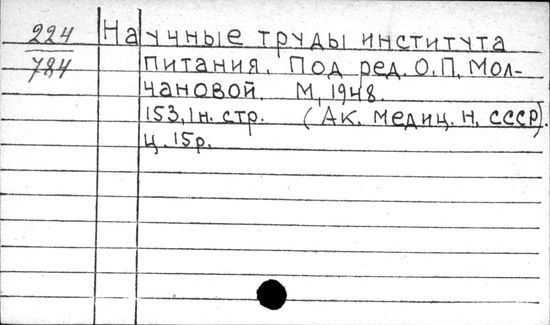 224 Научные труды института
784 питания. Под ред. О.П. Мол-
чановой. М, 1948.
153, 1 н. стр. (Ак. медиц. н. СССР).
Ц. 15 р.